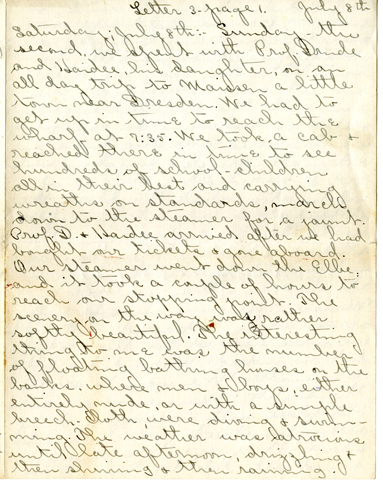 Letter 3-page 1. July 8th
Saturday, July 8th:- Sunday the
second, we spent with Prof. Drude
and Haidee, his daughter, on an
all day trip to Maissen a little
town near Dresden. We had to
get up in time to reach the
wharf at 7:35. We took a cab &
reached there in time to see
hundreds of school-children
all in their best and carrying
wreaths on standards, march
down to the steamer for a jaunt.
Prof. D. & Haidee arrived after we had
bought our tickets & gone aboard.
Our steamer went down the Elbe
and it took a couple of hours to
reach our stopping point. The
scenery on the way was rather
softly beautiful. The interesting
thing to me was the number
of floating bathing houses on the
banks, where men & boys, either
entirely nude, or with a simple
breech. Cloth, were diving & swim-
ming. The weather was atrocious
until late afternoon, drizzling &
then shining & then raining.